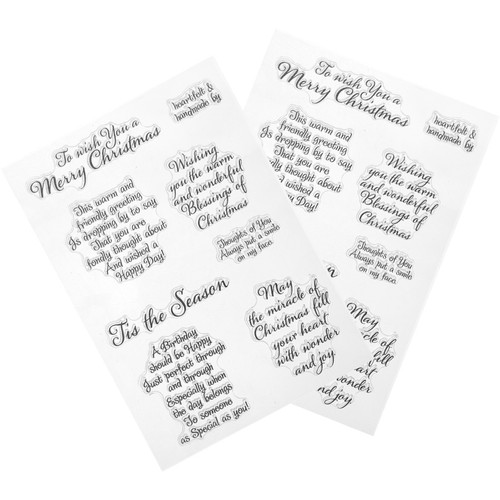 To wish You a
Merry Christmas
heartfelt &
handmade by
This warm and
friendly greeting
Is dropping by to say
That you are
fondly thought about
And wished a
Happy Day!
Wishing
you the warm
and wonderful
Blessings of
Christmas
Thoughts of You
Always put a smile
on my face.
Tis the Season
A Birthday
should be Happy
Just perfect through
and through
Especially when
the day belongs
To someone
as Special as you!
May
the miracle of
Christmas fill
your heart
with wonder
and joy
To wish You a
Merry Christmas
heartfelt &
handmade by
This warm and
friendly greeting
Is dropping by to say
That you are
fondly thought about
d wished a
Day!
Wishing
you the warm
and wonderful
Blessings of
Christmas
Thoughts of You
Always put a smile
on my face.
May
cle of
fill
art
onder
nd joy